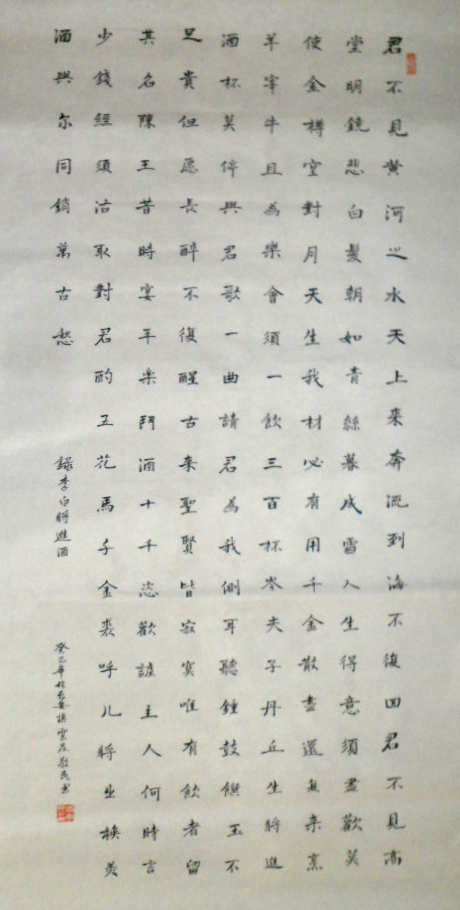 君不見黄河之水天上来奔流到海不復回君不見高
堂明鏡悲白髮朝如青絲暮成雪人生得意須盡歡莫
使金樽空對月天生我材必有用千金散盡還复来烹
羊宰牛且為樂會須一飲三百杯岑夫子丹丘生將進
酒杯莫停與君歌一曲請君為我側耳聽鍾鼓饌玉不
足貴但愿長醉不復醒古来聖賢皆寂寞唯有飲者留
其名陳王昔時宴平楽鬥酒十千恣歡謔主人何時言
少錢經須沽取對君酌五花馬千金裘呼儿將出換美
酒與尔同銷萬古愁
錄李白將進酒
癸巳年於長安